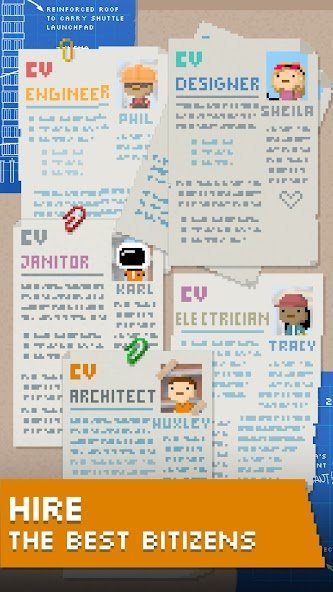 REINFORCED ROOF
TO CARRY SHUTTLE
LAUNCHPAD
CV
ENGINEER
PHIL
CV
DESIGNER
SHEILA
CV
JANITOR
KARL
CV
ELECTRICIAN
TRACY
CV
ARCHITECT
HUXLEY
HIRE
THE BEST BITIZENS